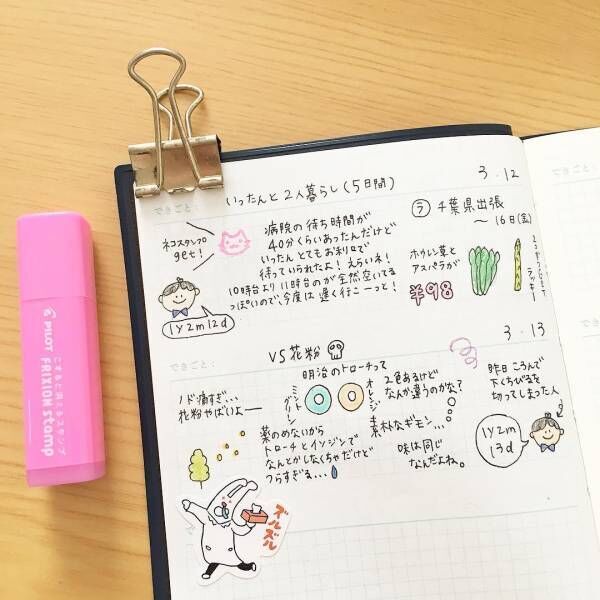 できごと：
いったんと2人暮らし(5日間)
3.12
ネコスタンプ
get!
病院の待ち時間が
40分くらいあったんだけど
いったん とてもお利口で
待っていられたよ！えらいネ！
10時台より11時台のが全然空いてる
っぽいので、今度は遅く行こーっと！
1y2m12d
ラ 千葉県出張
〜16日(金)
ホウレン草と
アスパラが
¥98
できごと：
3.13
VS花粉
ノド痛すぎ…
花粉やばいよー
明治のトローチって
ミント
グリーン
オレンジ
2色あるけど
なんか違うのかな?
素朴なギモン…
味は同じ
なんだよね。
薬のめないから
トローチとイソジンで
なんとかしなくちゃだけど
つらすぎる…
昨日 ころんで
下くちびるを
切ってしまった人
1y2m
13d
ズルズル
PILOT
こすると消えるスタンプ
FRIXION stamp